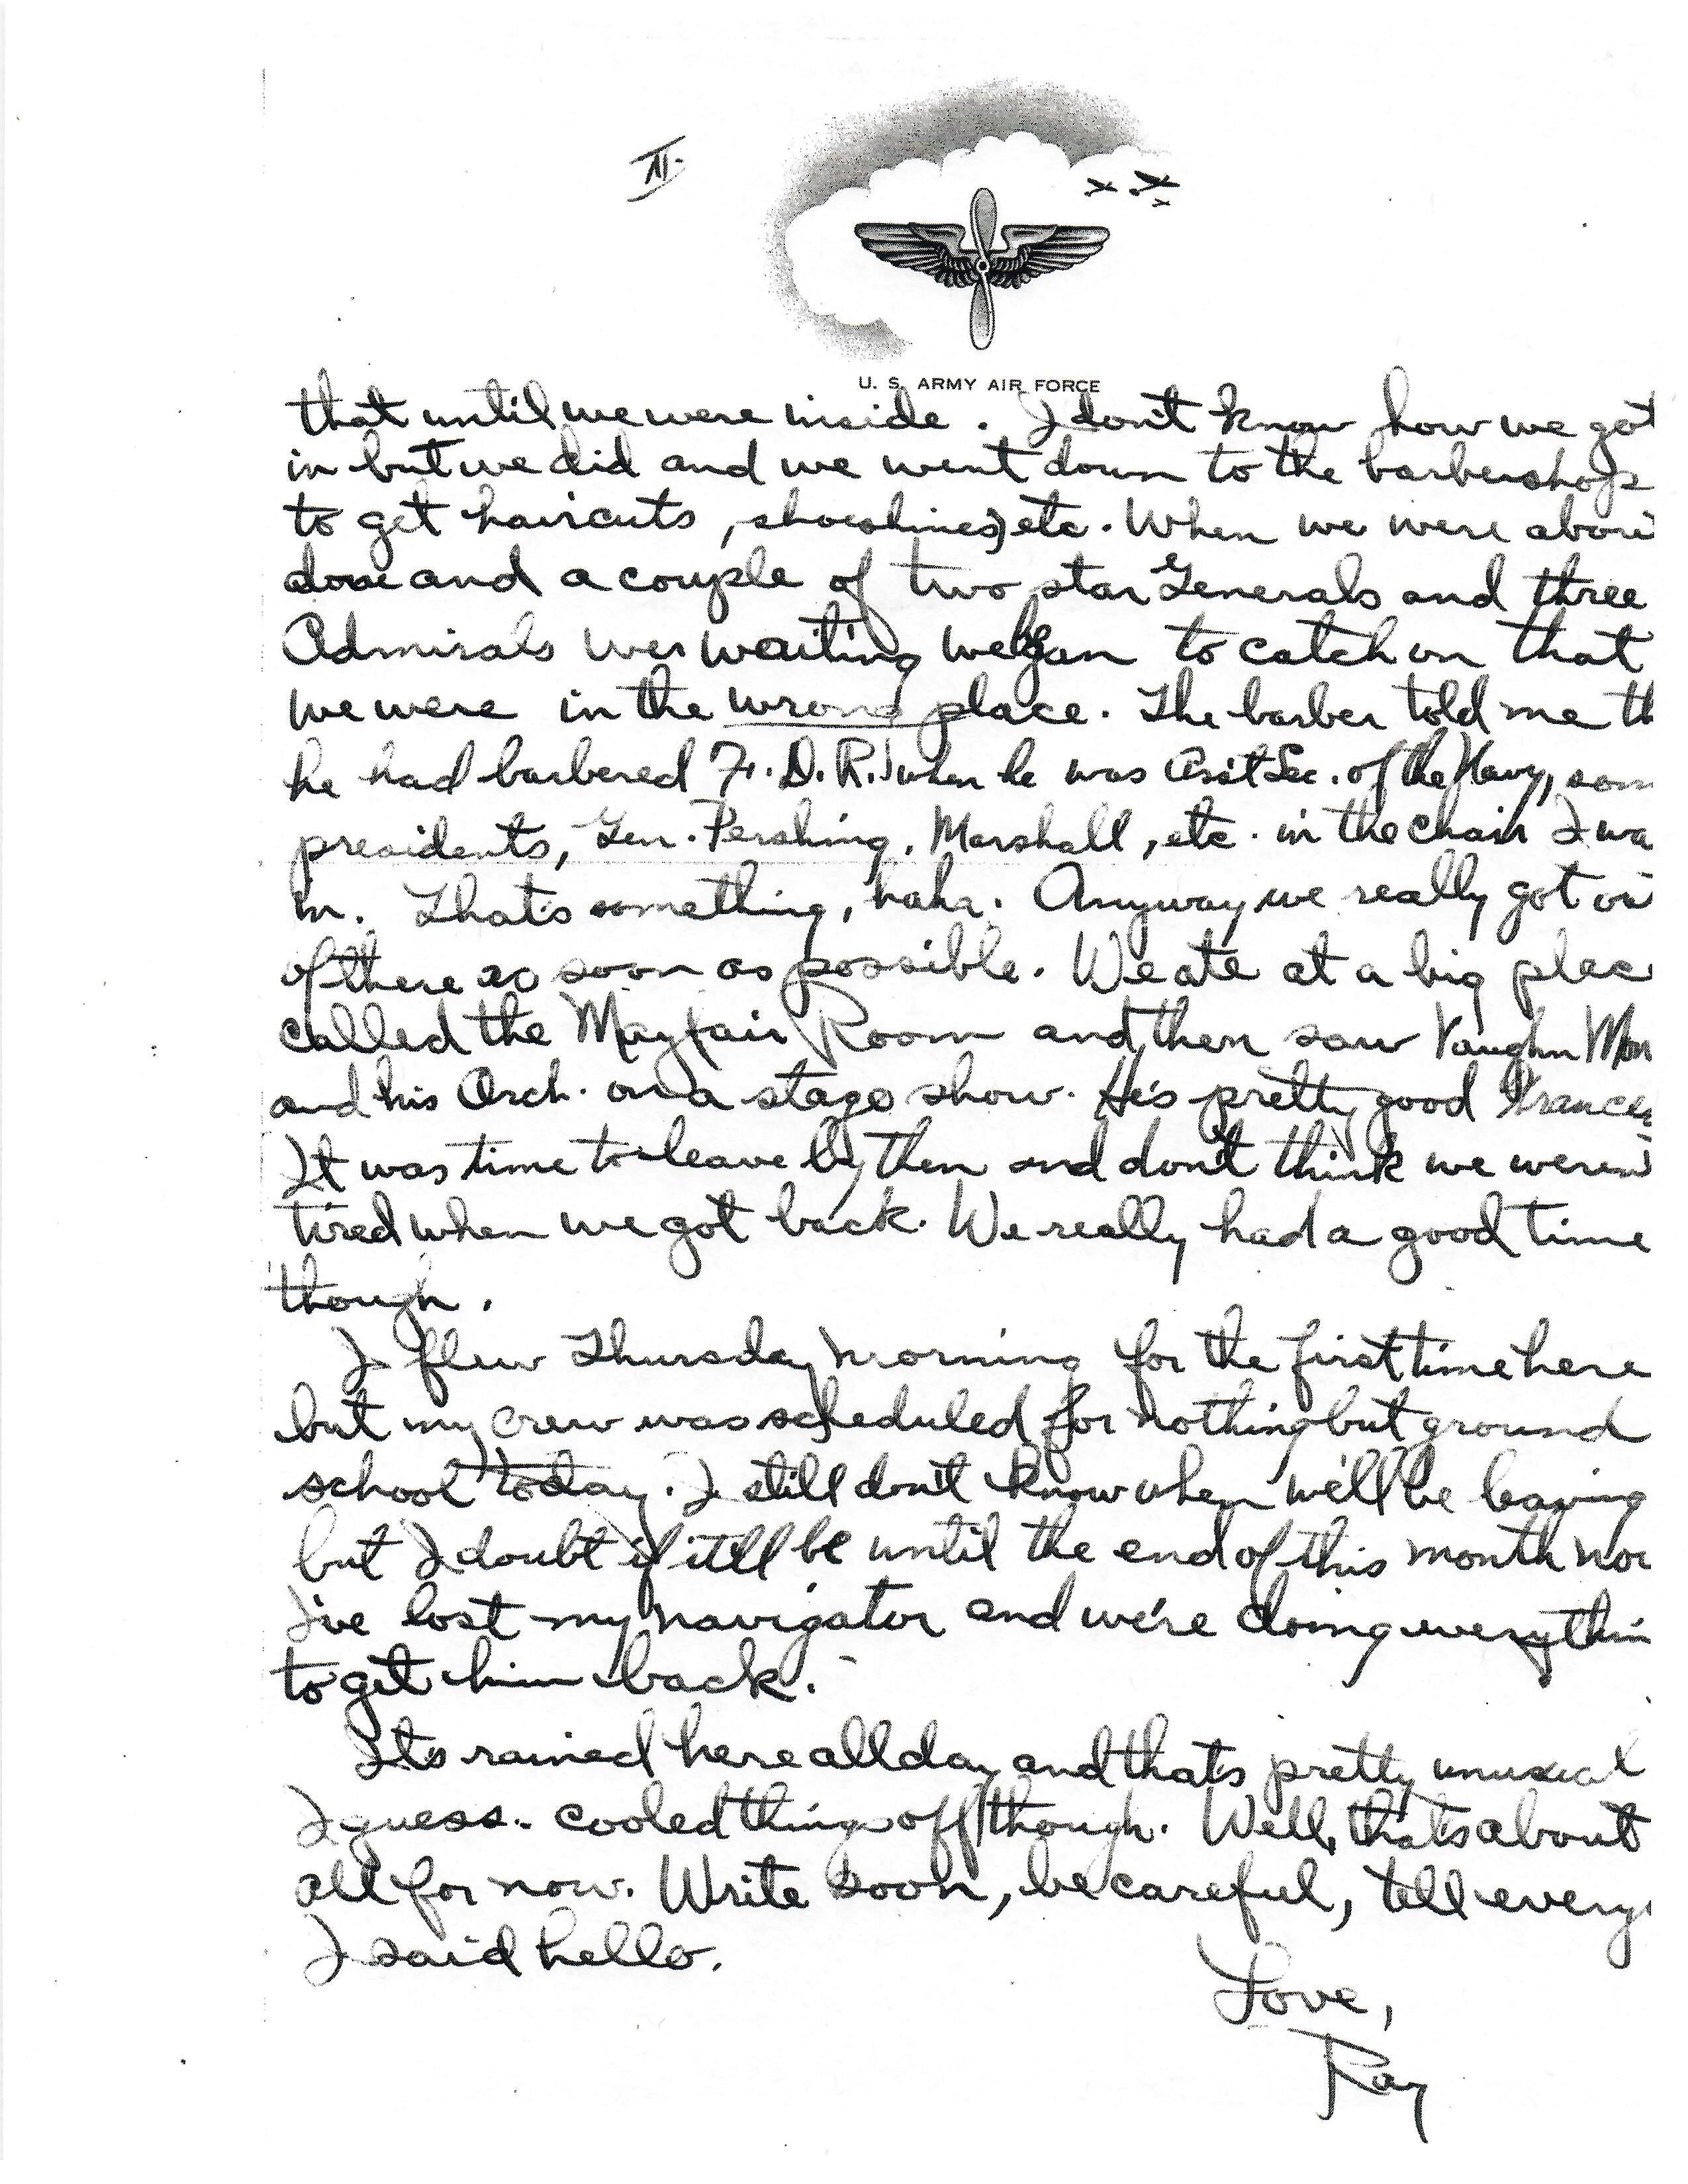 II.
U. S. ARMY AIR FORCE
that until we were inside. I don't know how we got
in but we did and we went down to the barbershop
to get haircuts, shoeshines, etc. When we were abou
done and a couple of two star Generals and three
Admirals wer waiting we began to catch on that
we were in the wrong place. The barber told me th
he had barbered F.D.R. when he was Ass't Sec. of the Navy, som
presidents, Gen. Pershing, Marshall, etc. in the chair I wa
in. That's something, haha. Anyway we really got ou
of there as soon as possible. We ate at a big plac
called the Mayfair Room and then saw Vaughn Mon
and his Orch. on a stage show. He's pretty good Frances
It was time to leave by then and don't think we weren'
tired when we got back. We really had a good time
though.
I flew Thursday morning for the first time here
but my crew was scheduled for nothing but ground
school today. I still don't know when we'll be leaving
but I doubt if it'll be until the end of this month now
I've lost my navigator and we're doing everythin
to get him back.
It's rained here all day and that's pretty unusual
I guess. cooled things off though. Well, that's about
all for now. Write soon, be careful, tell every
I said hello.
Love,
Ray